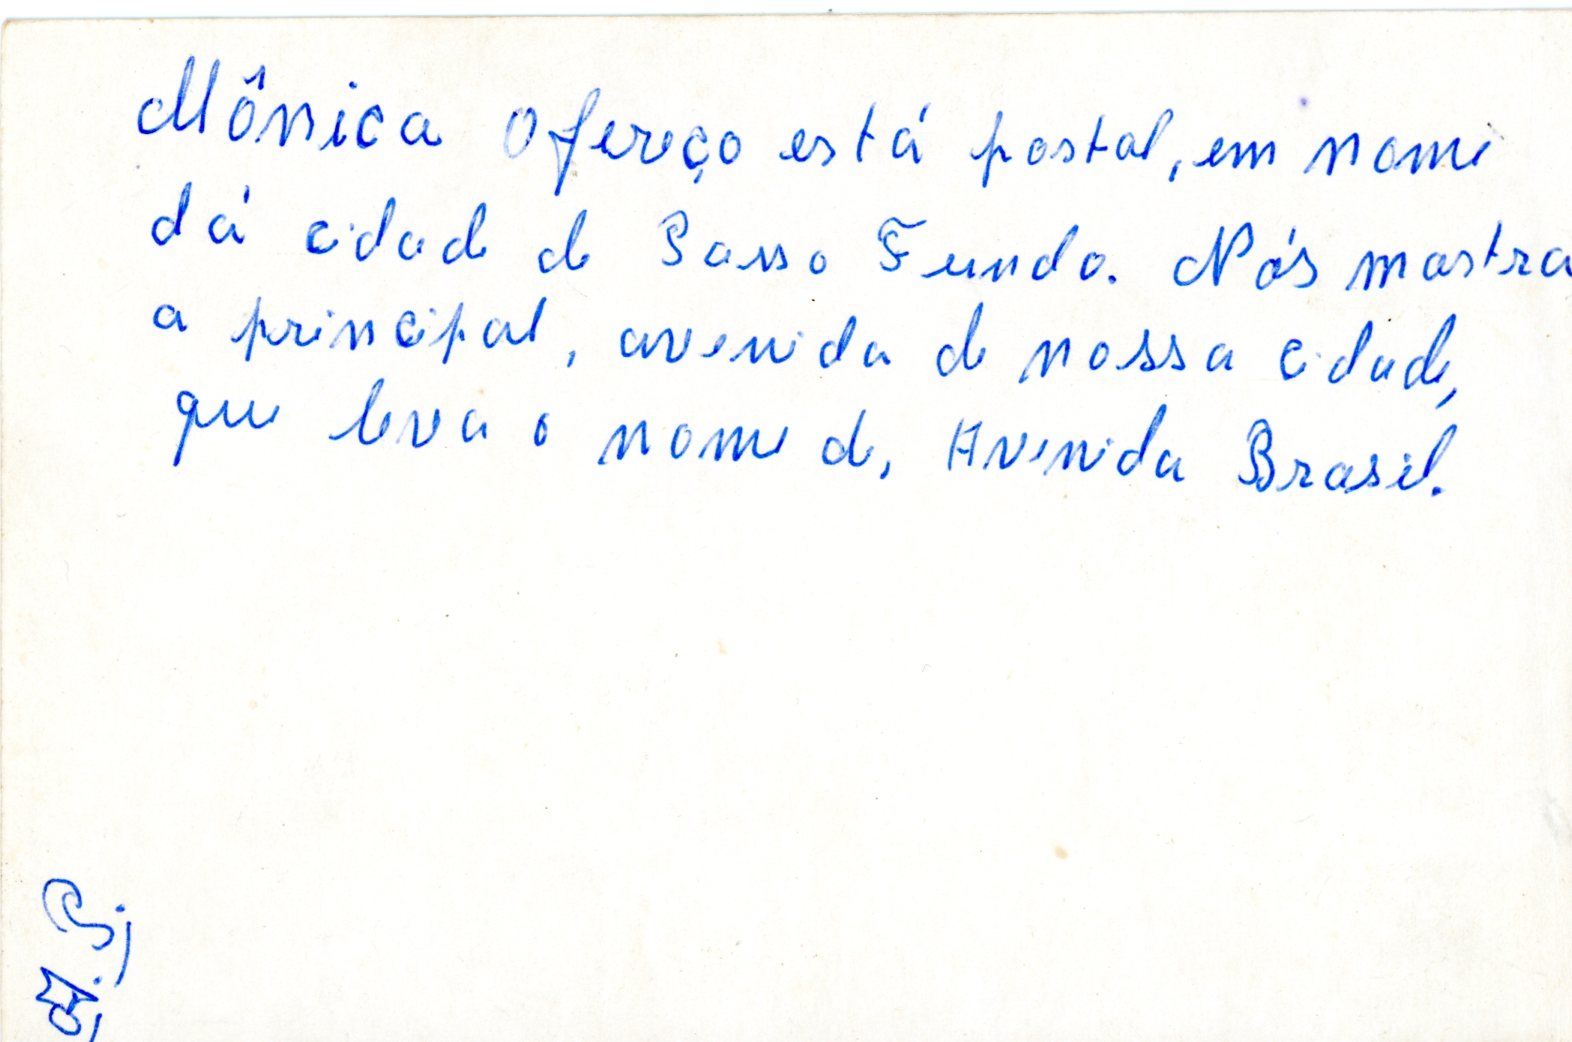 Mônica Ofereço está postal, em nome
dá cidade de Passo Fundo. Nós mostra
a principal, avenida de nossa cidade,
que leva o nome de, Avenida Brasil.